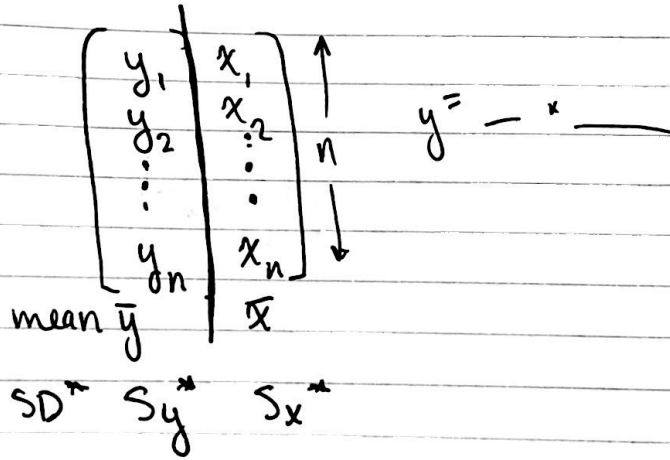 y₁ x₁
y₂ x₂ y = _ x ___
⋮ ⋮ n
yₙ xₙ
mean ȳ x̄
SD* Sy* Sx*